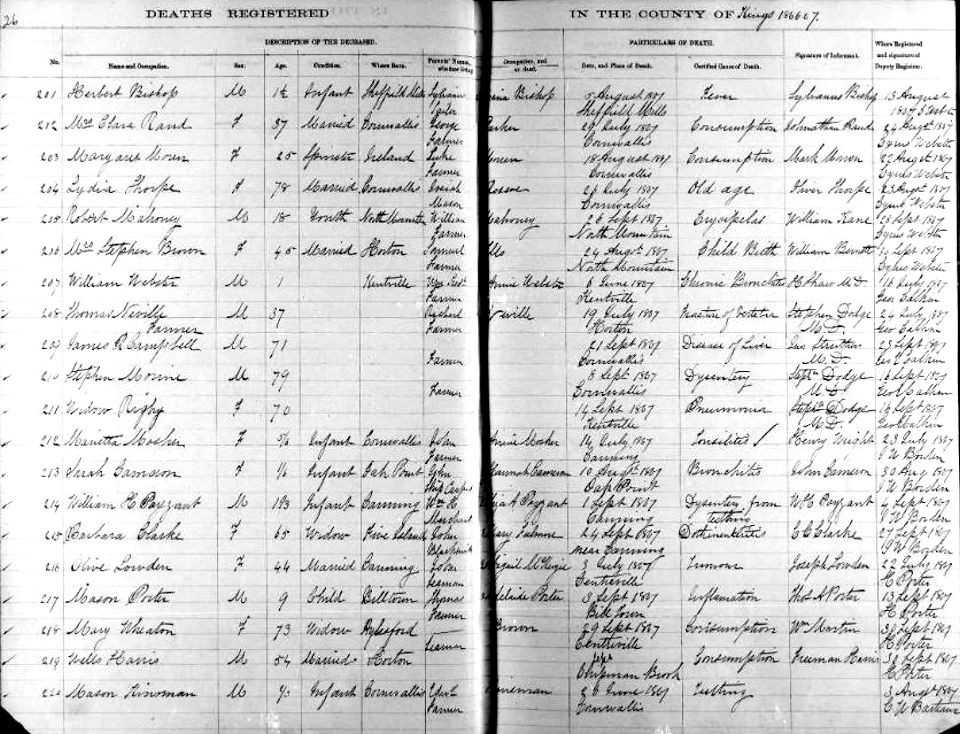 26
DEATHS REGISTERED IN THE COUNTY OF Kings 1866 67.
DESCRIPTION OF THE DECEASED. PARTICULARS OF DEATH.
No. Name and Occupation. Sex. Age. Condition. Where Born. Parents' Names, Occupation, and Date, and Place of Death. Certified Cause of Death. Signature of Informant. Where Registered and signature of Deputy Registrar.
201 Herbert Bishop M 1½ Infant Sheffield Mills Sylvanus Bishop August 1867 Fever Sylvanus Bishop 13 August
Sheffield Mills 1867
212 Mrs Clara Rand F 37 Married Cornwallis George Parker 29 July 1867 Consumption Johnathan Rand 24 Augt 1867
Farmer Cornwallis Cyrus Webster
203 Margaret Moren F 25 Spinster Ireland Luke Moren 18 August 1867 Consumption Mark Moren 22 Augt 1867
Farmer Cornwallis Cyrus Webster
204 Lydia Thorpe F 78 Married Cornwallis Roscoe July 1867 Old age Oliver Thorpe 23 Augt 1867
Mason Cornwallis Cyrus Webster
Robert Mahoney M 18 Youth North Mountain William Mahoney 26 Sept 1867 Erysipelas William Kane 28 Sept 1867
Farmer North Mountain Cyrus Webster
206 Mrs Stephen Brown F 45 Married Horton Samuel 24 Augt 1867 Child Birth William Bennett Sept 1867
Farmer North Mountain Cyrus Webster
207 William Webster M 1 Kentville Annie Webster 6 June 1867 Chronic Bronchitis H Shaw M D 16 July 1867
Farmer Kentville Geo Calkin
208 Thomas Neville M 37 Richard Neville 19 July 1867 Fracture of Vertebra Stephen Dodge 24 July 1867
Farmer Farmer Horton M. D. Geo Calkin
209 James R Campbell M 71 21 Sept 1867 Disease of Liver Geo Struthers Sept 1867
Farmer Cornwallis M. D. Calkin
210 Stephen Morine M 79 8 Sept 1867 Dysentery Stephn Dodge 16 Sept 1867
Farmer Cornwallis M D Geo Calkin
211 Widow Rigby F 70 14 Sept 1867 Pneumonia Stephn Dodge 19 Sept 1867
Kentville M. D. Geo Calkin
212 Marietta Mosher F Infant Cornwallis John Annie Mosher 14 July 1867 Tonsilites ✓ Henry Wright 23 July 1867
Farmer Canning J W Borden
213 Sarah Gameson F Infant Oak Point John Hannah Gameson 10 Augt 1867 Bronchitis John Gameson 30 Aug 1867
Ship Carpr Oak Point J W Borden
214 William H Payzant M Infant Canning Wm H Payzant 1 Sept 1867 Dysentery from W H Payzant 4 Sept 1867
Merchant Canning teething J W Borden
215 Barbara Clarke F 65 Widow Five Island John 24 Sept 1867 C C Clarke 27 Sept 1867
Blacksmith near Canning J W Borden
216 Olive Lowden F 44 Married Canning John 3 July 1867 Tumour Joseph Lowden 22 July 1867
Seaman Centreville H Porter
217 Mason Porter M 9 Child Billtown Thomas Adelaide Porter 3 Sept 1867 Inflamation Thos A Porter 13 Sept 1867
Farmer Bill Town H Porter
218 Mary Wheaton F 73 Widow Aylesford Brown 29 Sept 1867 Consumption Wm Martin 30 Sept 1867
Centreville H Porter
219 Wells Harris M 54 Married Horton Sept Consumption Freeman Harris 30 Sept 1867
Chipman Brook H Porter
220 Mason Kinsman M Infant Cornwallis Kinsman 26 June 1867 Teething 3 Augt 1867
Farmer Cornwallis C W Barteaux